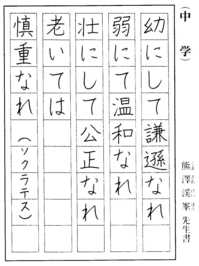 (中学)
幼にして謙遜なれ
弱にして温和なれ
壮にして公正なれ
老いては
慎重なれ(ソクラテス)
熊澤渓峯先生書